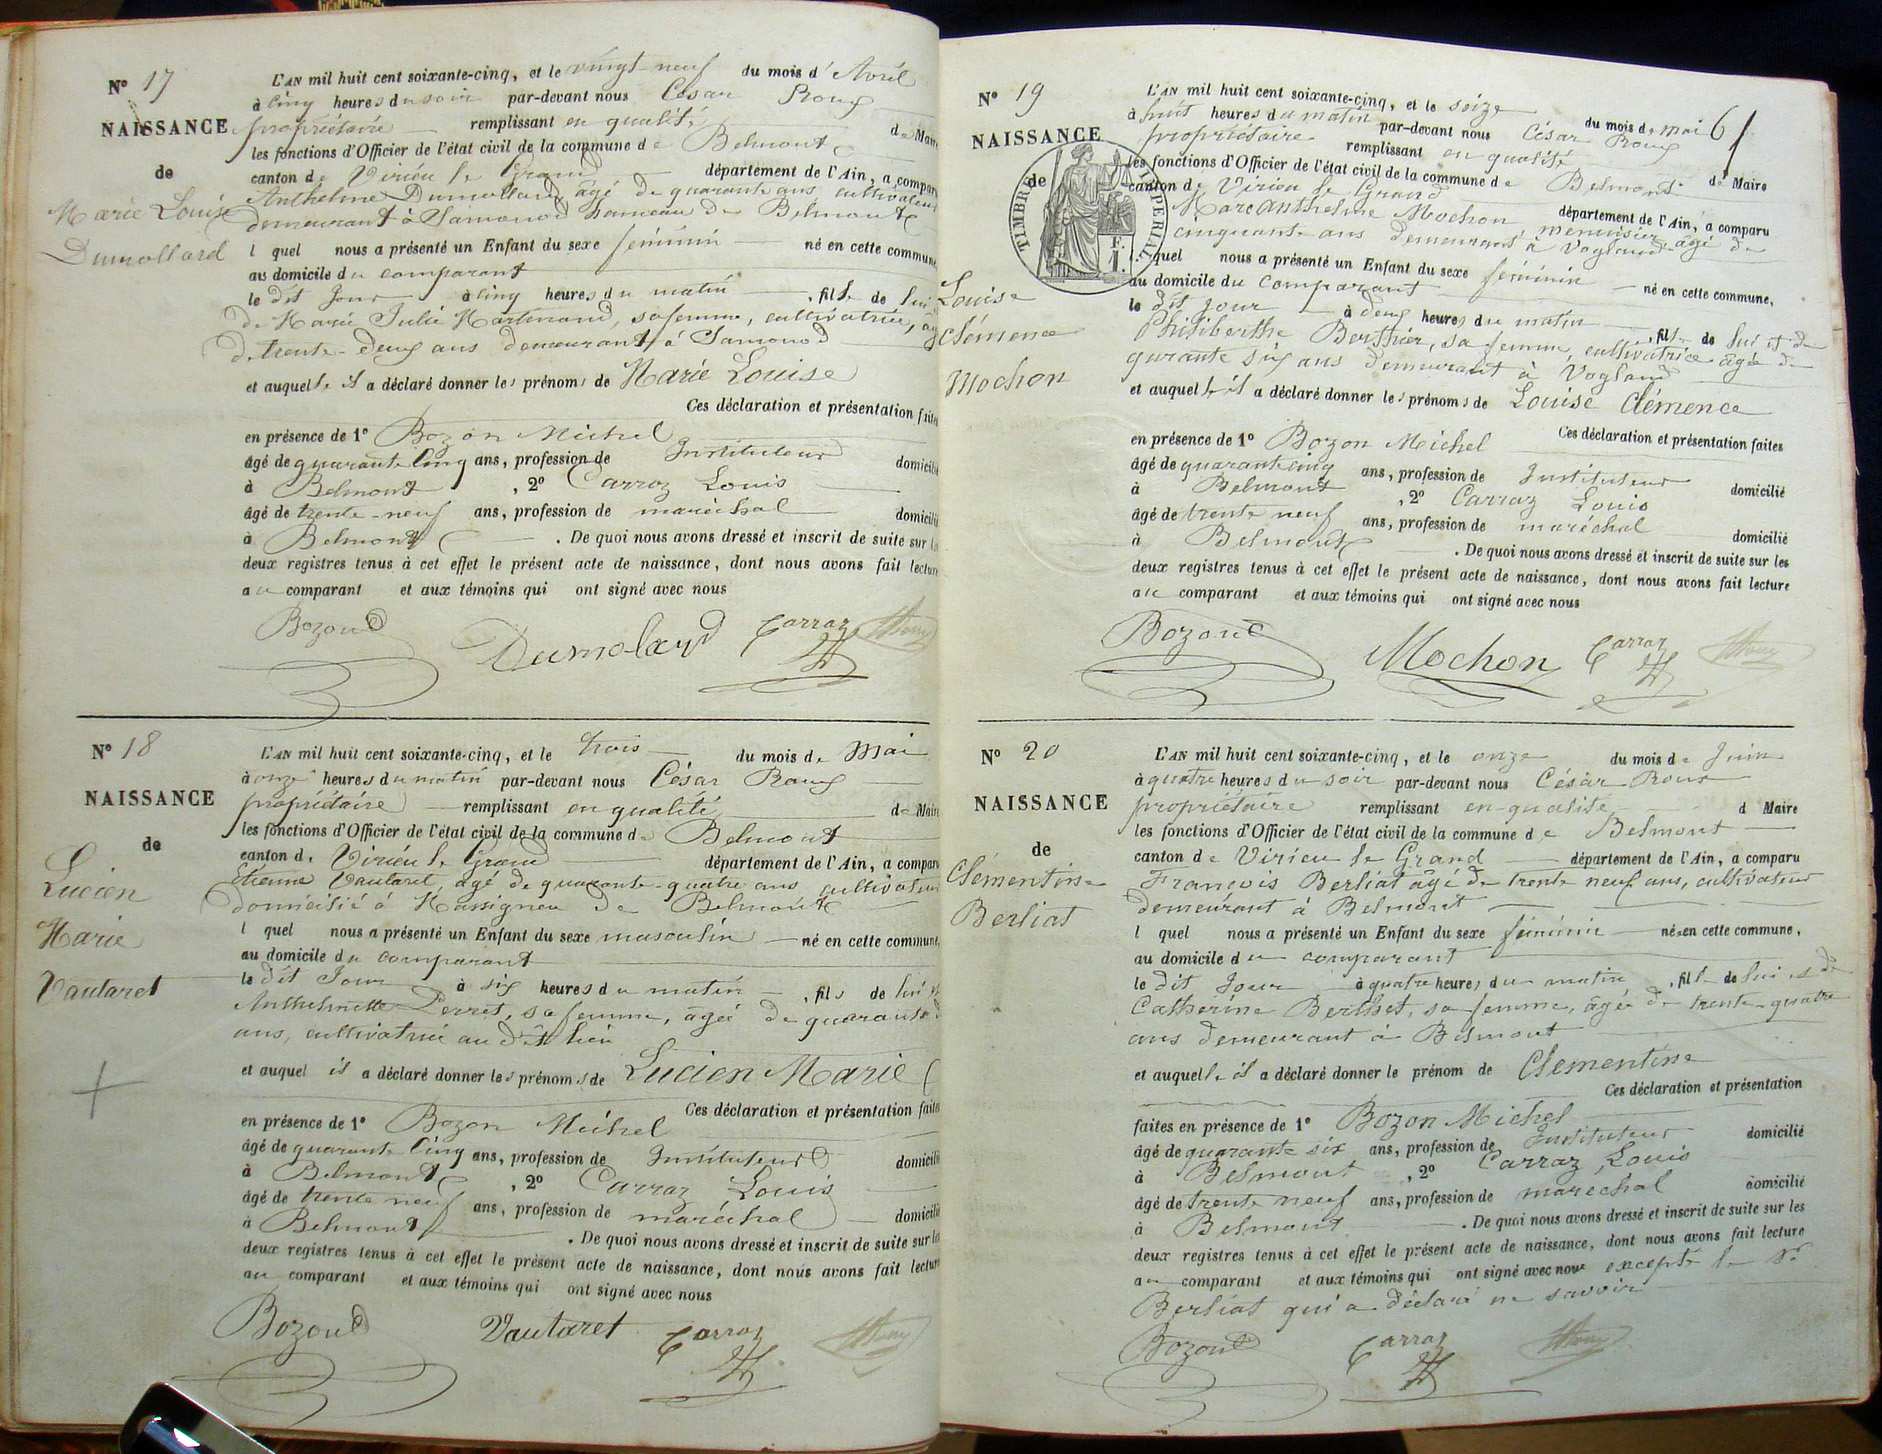 N° 17
NAISSANCE
de
Marie Louise
Dumollard
L'AN mil huit cent soixante-cinq, et le vingt-neuf du mois d'Avril
à cinq heures du soir par-devant nous César Roux
propriétaire remplissant en qualité de Maire
les fonctions d'Officier de l'état civil de la commune de Belmont
canton de Virieu le Grand département de l'Ain, a comparu
Anthelme Dumollard âgé de quarante ans cultivateur
demeurant à Samonod hameau de Belmont
lequel nous a présenté un Enfant du sexe féminin né en cette commune
au domicile du comparant
le dit jour à cinq heures du matin, fille de lui
de Marie Julie Martinand, sa femme, cultivatrice,
de trente-deux ans demeurant à Samonod
et auquelle il a déclaré donner les prénoms de Marie Louise
Ces déclaration et présentation faites
en présence de 1° Bozon Michel
âgé de quarante cinq ans, profession de Instituteur domicilié
à Belmont, 2° Carraz Louis
âgé de trente-neuf ans, profession de maréchal domicilié
à Belmont. De quoi nous avons dressé et inscrit de suite sur les
deux registres tenus à cet effet le présent acte de naissance, dont nous avons fait lecture
au comparant et aux témoins qui ont signé avec nous
Bozond Dumolard Carraz
N° 18
NAISSANCE
de
Lucien
Marie
Vautaret
L'AN mil huit cent soixante-cinq, et le trois du mois de Mai
à onze heures du matin par-devant nous César Roux
propriétaire remplissant en qualité de Maire
les fonctions d'Officier de l'état civil de la commune de Belmont
canton de Virieu le Grand département de l'Ain, a comparu
Etienne Vautaret, âgé de quarante-quatre ans cultivateur
domicilié à Massigneu de Belmont
lequel nous a présenté un Enfant du sexe masculin né en cette commune,
au domicile du comparant
le dit Jour à six heures du matin, fils de lui et
Anthelmette Perret, sa femme, âgée de quarante
ans, cultivatrice au dit lieu
et auquel il a déclaré donner les prénoms de Lucien Marie
Ces déclaration et présentation faites
en présence de 1° Bozon Michel
âgé de quarante cinq ans, profession de Instituteur domicilié
à Belmont, 2° Carraz Louis
âgé de trente neuf ans, profession de maréchal domicilié
à Belmont. De quoi nous avons dressé et inscrit de suite sur les
deux registres tenus à cet effet le présent acte de naissance, dont nous avons fait lecture
au comparant et aux témoins qui ont signé avec nous
Bozond Vautaret Carraz
61
N° 19
NAISSANCE
de
TIMBRE IMPERIAL
F.
1.
Louise
Clémence
Mochon
L'AN mil huit cent soixante-cinq, et le seize du mois de mai
à huit heures du matin par-devant nous César Roux
propriétaire remplissant en qualité de Maire
les fonctions d'Officier de l'état civil de la commune de Belmont
canton de Virieu le Grand département de l'Ain, a comparu
Marc Anthelme Mochon menuisier âgé de
cinquante ans demeurant à Vogland
lequel nous a présenté un Enfant du sexe féminin né en cette commune,
au domicile du comparant
le dit jour à deux heures du matin, fille de lui et de
Philiberthe Berthier, sa femme, cultivatrice âgée de
qurante six ans demeurant à Vogland
et auquelle il a déclaré donner les prénoms de Louise Clémence
Ces déclaration et présentation faites
en présence de 1° Bozon Michel
âgé de quarante cinq ans, profession de Instituteur domicilié
à Belmont, 2° Carraz Louis
âgé de trente neuf ans, profession de maréchal domicilié
à Belmont. De quoi nous avons dressé et inscrit de suite sur les
deux registres tenus à cet effet le présent acte de naissance, dont nous avons fait lecture
au comparant et aux témoins qui ont signé avec nous
Bozond Mochon Carraz
N° 20
NAISSANCE
de
Clémentine
Berliat
L'AN mil huit cent soixante-cinq, et le onze du mois de Juin
à quatre heures du soir par-devant nous César Roux
propriétaire remplissant en qualité d Maire
les fonctions d'Officier de l'état civil de la commune de Belmont
canton de Virieu le Grand département de l'Ain, a comparu
François Berliat âgé de trente neuf ans, cultivateur
demeurant à Belmont
lequel nous a présenté un Enfant du sexe féminin née en cette commune,
au domicile du comparant
le dit Jour à quatre heures du matin, fille de lui et de
Catherine Berthet, sa femme, âgée de trente-quatre
ans demeurant à Belmont
et auquelle il a déclaré donner le prénom de Clementine
Ces déclaration et présentation
faites en présence de 1° Bozon Michel
âgé de quarante six ans, profession de Instituteur domicilié
à Belmont, 2° Carraz Louis
âgé de trente neuf ans, profession de marechal domicilié
à Belmont. De quoi nous avons dressé et inscrit de suite sur les
deux registres tenus à cet effet le présent acte de naissance, dont nous avons fait lecture
au comparant et aux témoins qui ont signé avec nous excepté le Sr
Berliat qui a déclaré ne savoir
Bozond Carraz